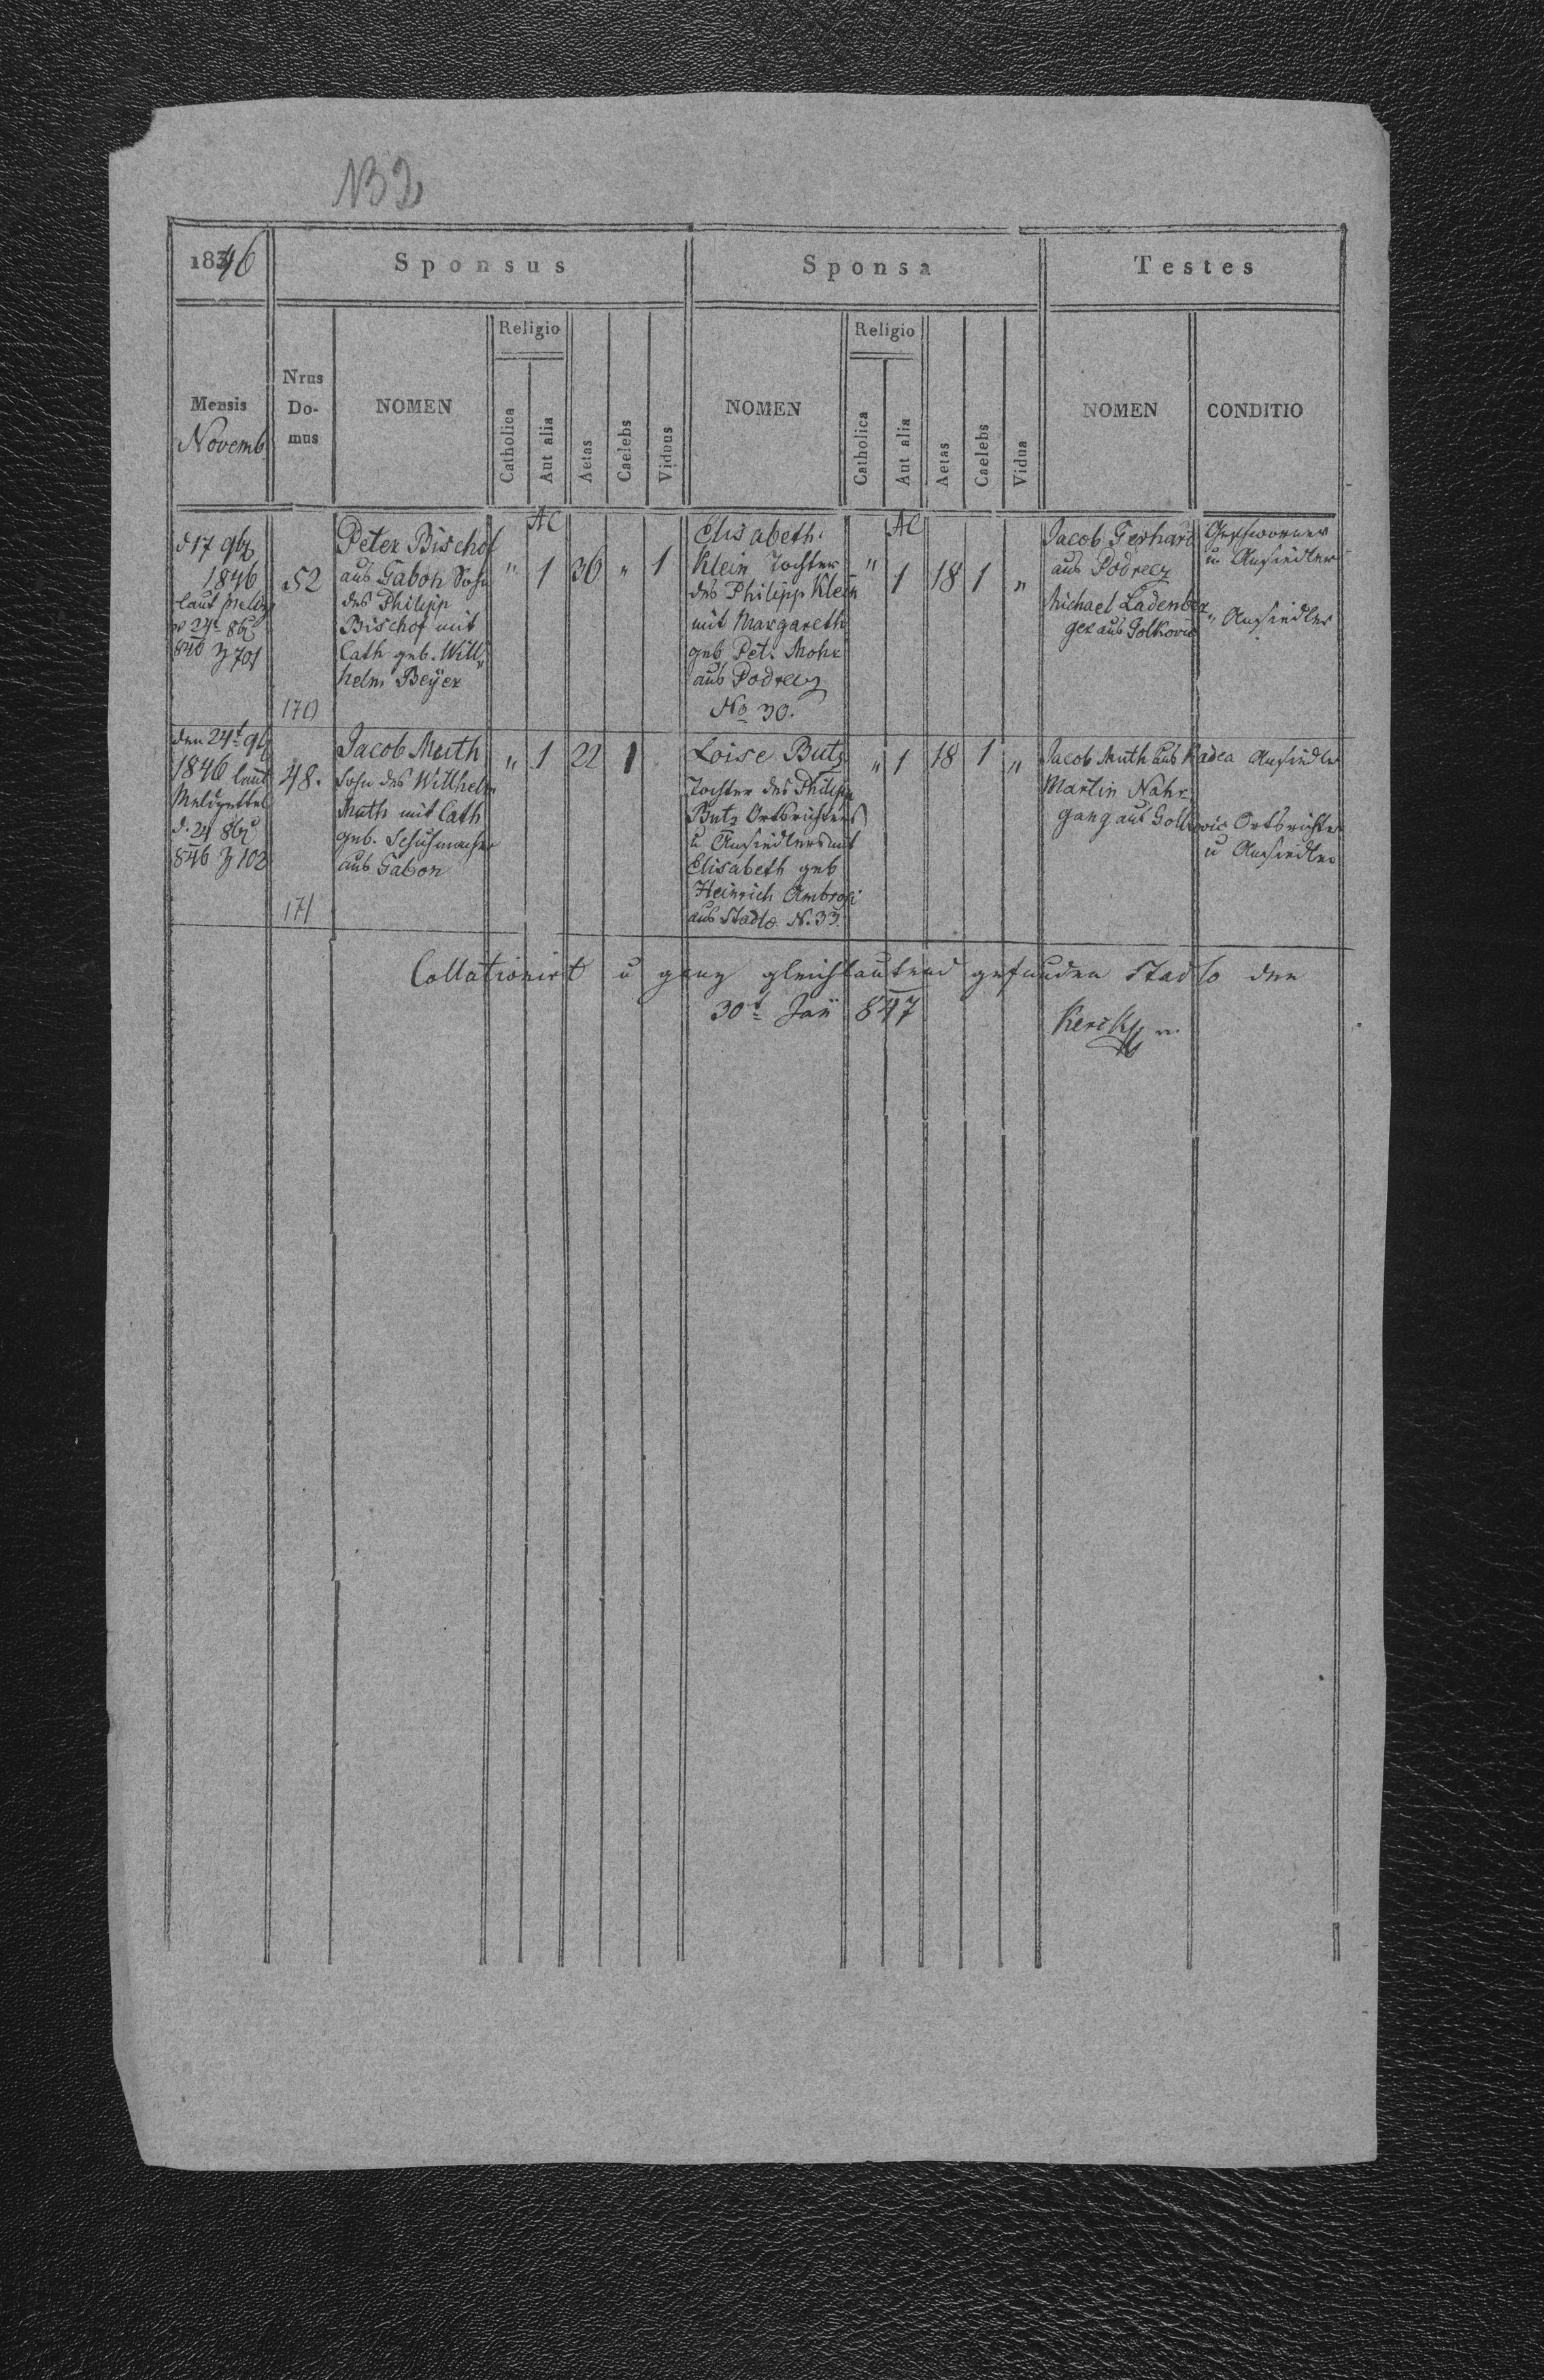 NB 2
1846
Sponsus
Sponsa
Testes
Mensis
Novemb
Nrus
Do-
mus
NOMEN
Religio
Catholica
Aut alia
Aetas
Caelebs
Viduus
NOMEN
Religio
Catholica
Aut alia
Aetas
Caelebs
Vidua
NOMEN
CONDITIO
d 17 9br
1846
laut
846 Z 701
52
170
Peter Bischof
aus Gabon Sohn
des Philipp
Bischof mit
Cath geb. Will„
helm Beÿer
„
AC
1
36
„
1
Elisabeth
Klein Tochter
des Philipp Klein
mit Margareth
geb Pet. Mohr
aus Podrecz
No 30.
„
AC
1
18
1
„
Jacob Gerhard
aus Podrecz
Michael Ladenber
ger aus Golkovic
Geschworner
u Ansiedler
„ Ansiedler
den 24t 9br
1846 laut
Meldzettel
d. 21 8br
846 Z 102
48.
171
Jacob Muth
Sohn des Willhelm
Muth mit Cath
geb. Schuhmacher
aus Gabon
„
1
22
1
Loise Butz
Tochter des Philipp
Butz Ortsrichters
u Ansiedlers mit
Elisabeth geb
Heinrich Ambrosi
aus Stadlo N. 33.
„
1
18
1
„
Jacob Muth aus Kadca
Martin Nahr
gang aus Golkovic
Ansiedler
Ortsrichter
u Ansiedler
Collationirt u ganz gleichlautend gefunden Stadlo den
30t Jan 847